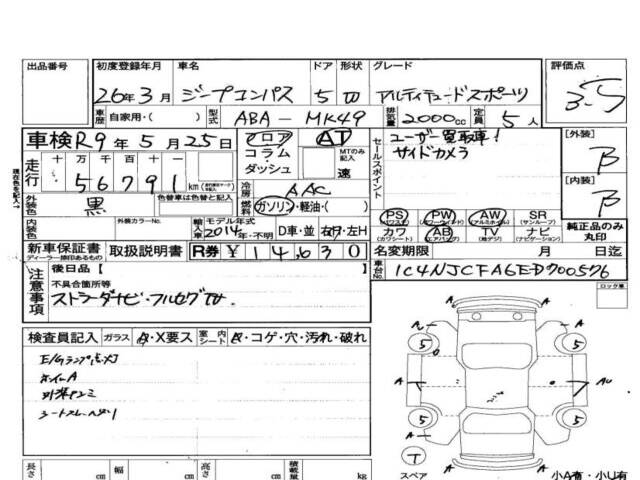 出品番号
初度登録年月 車名 ドア 形状 グレード 評価点
26年3月 ジープコンパス 5 W アルティテュードスポーツ 3.5
車歴 自家用・( ) 型式 ABA-MK49 排気量 2000cc 定員 5人
車検 R9年5月25日 フロア AT
コラム・ダッシュ MTのみ記入 速
セールスポイント
ユーザー買取車!
サイドカメラ
[外装] B
[内装] B
現在色を記入→
走行 十 万 千 百 十 一
56791 km
冷房 AAC
燃料 ガソリン・軽油・( )
外装色 黒 色替車は色替と記入
内装色 外装カラーNo.
輸入車 モデル年式 2014年・不明 D車・並 右H・左H
PS (パワステ) PW (パワーウインド) AW (アルミホイル) SR (サンルーフ)
カワ (カワシート) AB (エアバッグ) TV (地デジ) ナビ (ナビゲーション)
純正品のみ丸印
新車保証書 ディーラー捺印あるもの 取扱説明書 R券 ¥14,630
名変期限 月 日迄
車台No. 1C4NJCFA6ED700576
注意事項
後日品[ ]
不具合箇所等
ストラーダナビ・フルセグTV
ロック車
検査員記入 ガラス A・X要ス 室内シート ・コゲ・穴・汚れ・破れ
E/Gランプ点灯
ホイールA
A
A
5
5
A
AU
5
5
A
T
スペア
長さ cm 幅 cm 高さ cm 積載量 kg
小A有・小U有